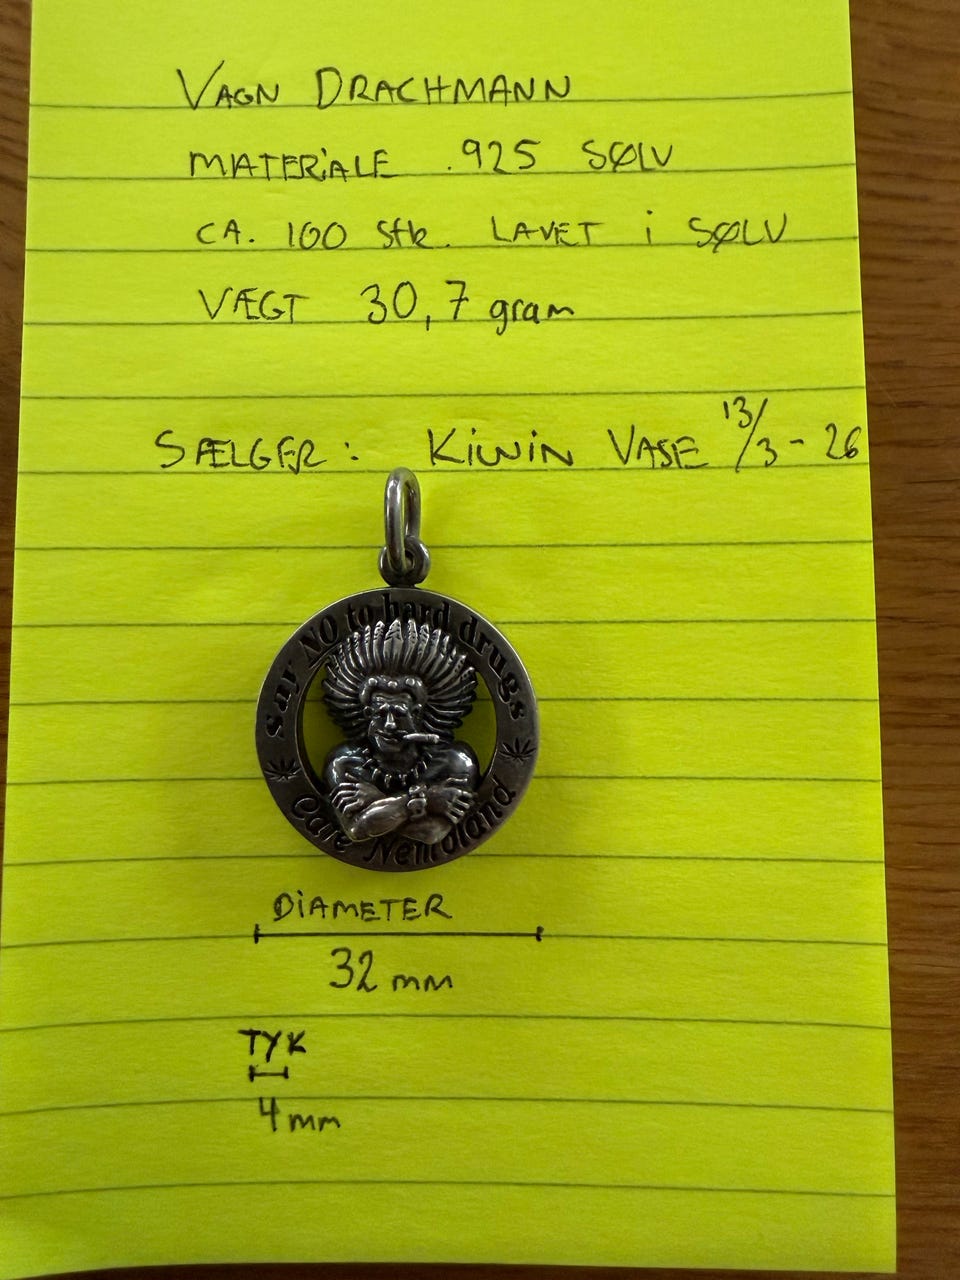 VAGN DRACHMANN
MATERiALE .925 SØLV
CA. 100 Stk. LAVET i SØLV
VÆGT 30,7 gram
SÆLGER: KiWiN VASE 13/3-26
Say NO to hard drugs
Cafe Nemoland
DiAMETER
32 mm
TYK
4 mm